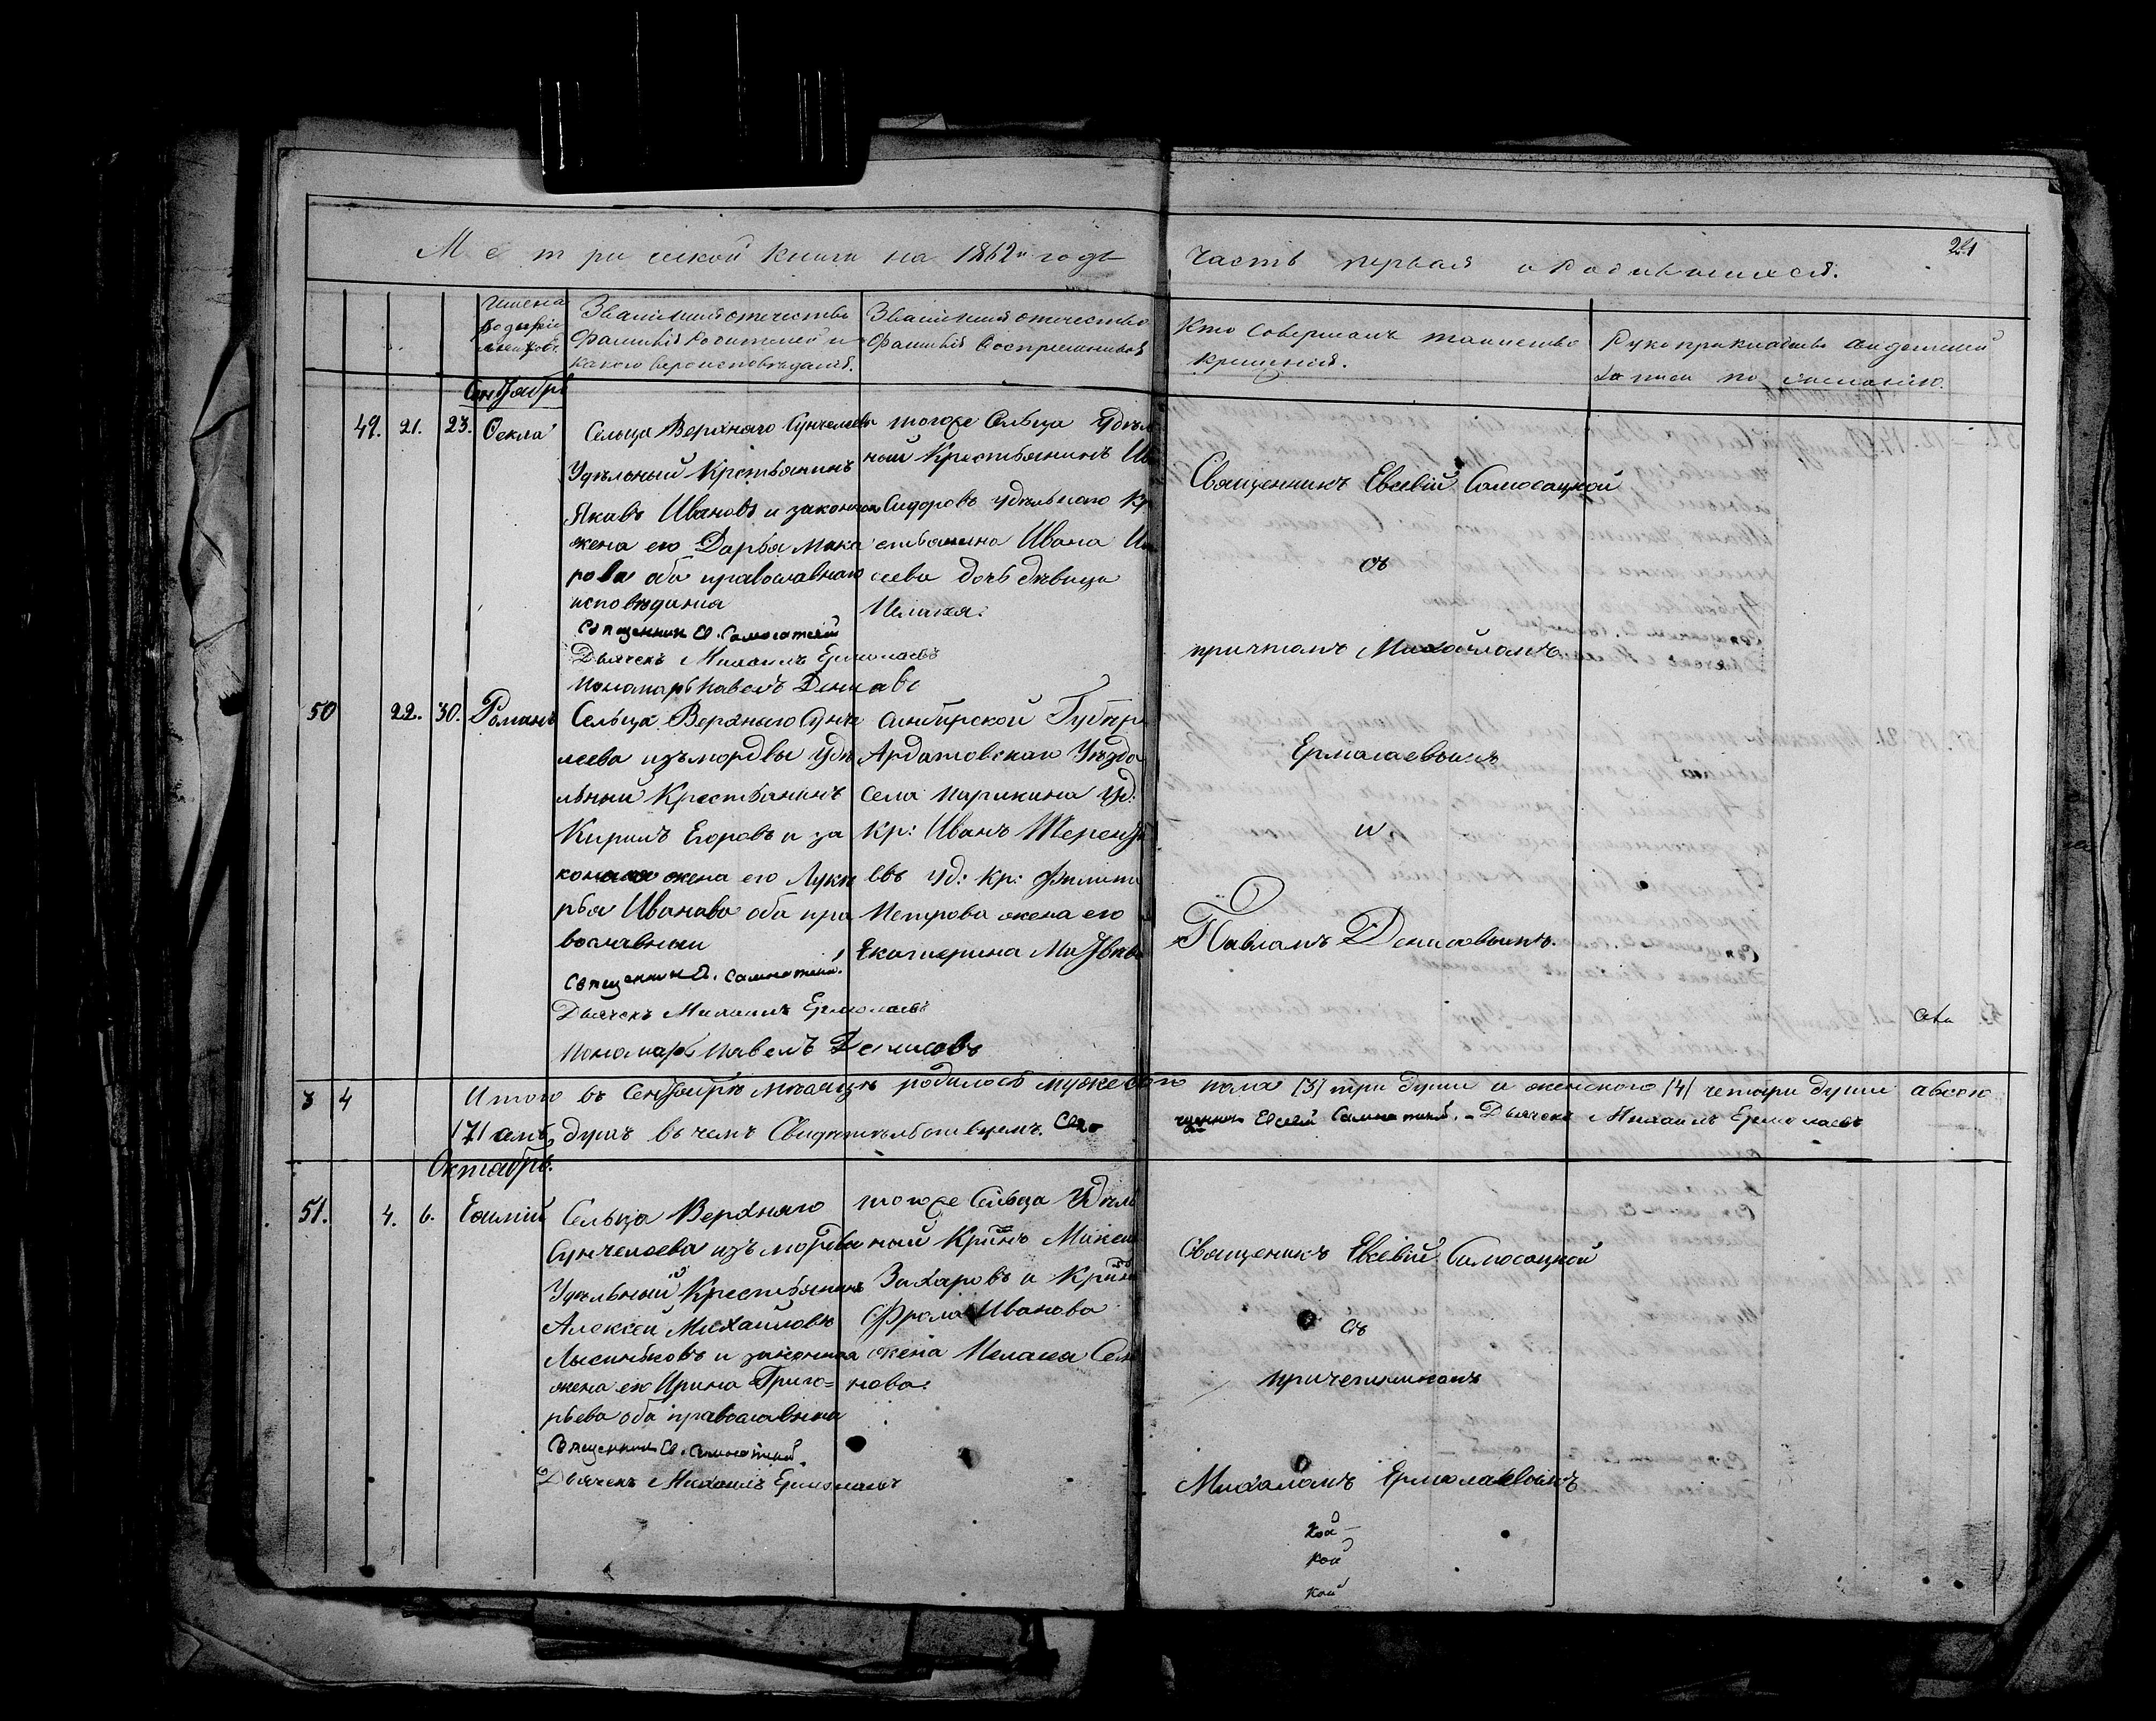 Метрической книги на 1862й годъ
Часть первая о Родившихся.
21
Имена родившихся
Званіе имя отечество
Фамилія Родителей и
какого вероисповѣданія.
Званіе имя отечество
Фамилія Воспреемниковъ
Кто Совершалъ таинство
крещенія.
Рукоприкладство свидетелей
записи по желанію.
Сентябрь
49. 21. 23. Ѳекла
Сельца Верхняго Сунчелеева
Удѣльный Крестьянинъ
Яковъ Ивановъ и законная
жена его Дарья Мака
рова оба православнаго
исповѣданія
Священникъ Е. Самосатскій
Дьячекъ Михаилъ Ермолаевъ
Пономарь Павелъ Денисовъ
тогоже Сельца Удѣль
ный Крестьянинъ Ив
Сидоровъ удѣльнаго Кр
естьянина Ивана
сева дочь дѣвица
Пелагея.
Священникъ Евсевій Самосацкой
съ
причтомъ Михайломъ
Ермолаевымъ
и
Павломъ Денисовымъ.
50 22. 30. Романъ
Сельца Верхняго Сунче
леева изъ мордвы Удѣ
льный Крестьянинъ
Кирилъ Егоровъ и за
конная жена его Луке
рья Иванова оба пра
вославныи
Священникъ Е. Самосатскій
Дьячекъ Михаилъ Ермолаевъ
Пономарь Павелъ Денисовъ
Симбирской Губер
Ардатовскаго Уѣзда
села Парикина Уд:
Кр: Иванъ Терентье
въ Уд: Кр: Филипа
Петрова жена его
Екатерина Матвѣева
3 4 Итого въ Сентябрѣ месяцѣ родилось мужескаго пола [3] три души и женскаго [4] четыри души а всего
[7] семь душъ въ чемъ Свидѣтельствуемъ. Свя
щенникъ Евсевій Самосатскій. Дьячекъ Михаилъ Ермолаевъ
Октябрь.
51. 4. 6. Евѳимій
Сельца Верхняго
Сунчелеева изъ мордвы
Удѣльный Крестьянинъ
Алексей Михайловъ
Лысиньковъ и законная
жена его Ирина Григо=
рьева оба православныи
Священникъ Е. Самосатскій
Дьячекъ Михаилъ Ермолаевъ
тогоже Сельца Удѣль
ный Кр-инъ
Захаровъ и Кр-ина
Фрола Иванова
жена Пелагея Семе
нова.
Священикъ Евсевій Самосацкой
съ
причетникомъ
Михаломъ Ермолаевымъ
кой
кой
кой